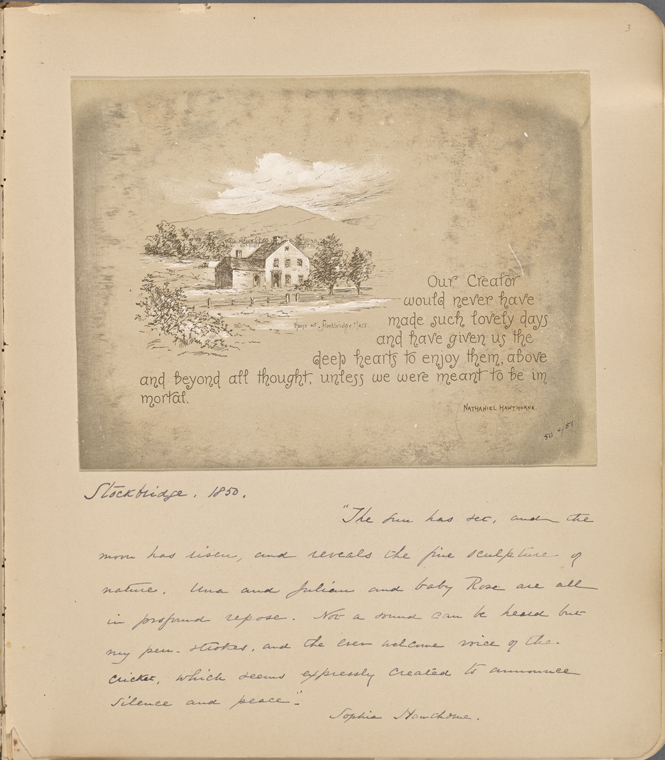 3
Our Creator
would never have
made such lovely days
and have given us the
deep hearts to enjoy them, above
and beyond all thought, unless we were meant to be im
mortal.
House at Stockbridge Mass.
NATHANIEL HAWTHORNE.
Stockbridge. 1850.
"The sun has set, and the
moon has risen, and reveals the fine sculpture of
nature. Una and Julian and baby Rose are all
in profound repose. Not a sound can be heard but
my pen-strokes, and the ever welcome voice of the
cricket, which seems expressly created to announce
silence and peace."
Sophia Hawthorne.